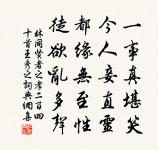 一事真堪笑
今人妄直靈
都緣無至性
徒欲亂多聲
林同賢者之孝二百四
十首王秀之詞典網集